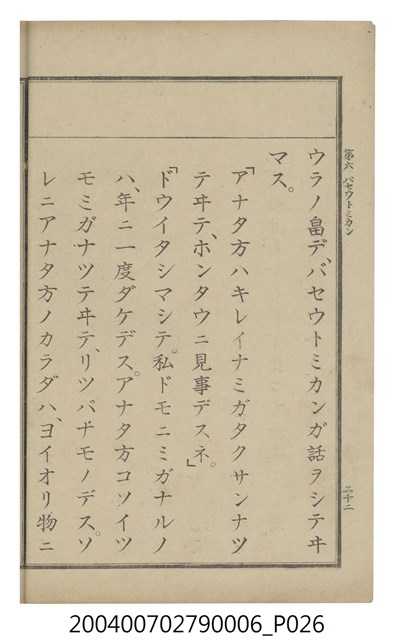 第六 バセウトミカン
二十二
ウラノ畠デ、バセウトミカンガ話ヲシテヰ
マス。
「アナタ方ハキレイナミガタクサンナツ
テヰテ、ホンタウニ見事デスネ。」
「ドウイタシマシテ。私ドモニミガナルノ
ハ、年ニ一度ダケデス。アナタ方コソイツ
モミガナツテヰテ、リツパナモノデス。ソ
レニアナタ方ノカラダハ、ヨイオリ物ニ
200400702790006_P026